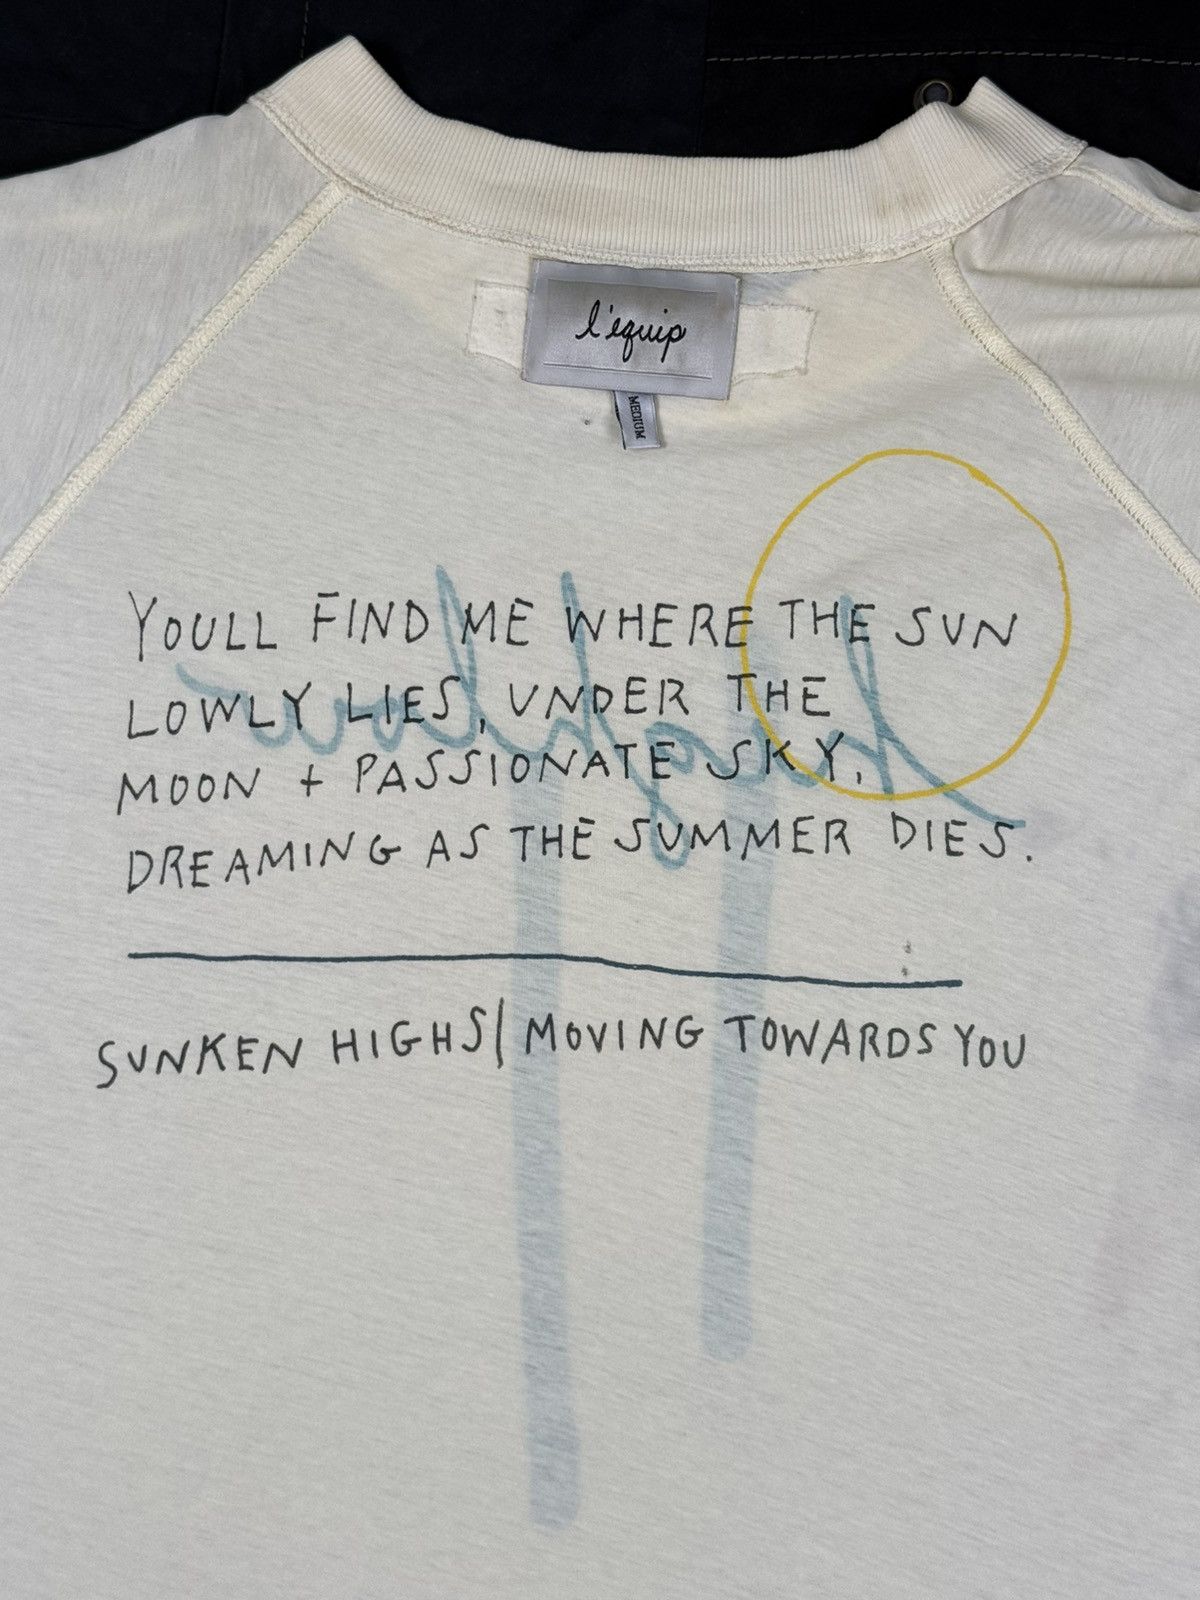 l'équip
MEDIUM
YOULL FIND ME WHERE THE SUN
LOWLY LIES, UNDER THE
MOON + PASSIONATE SKY,
DREAMING AS THE SUMMER DIES.
SUNKEN HIGHS| MOVING TOWARDS YOU